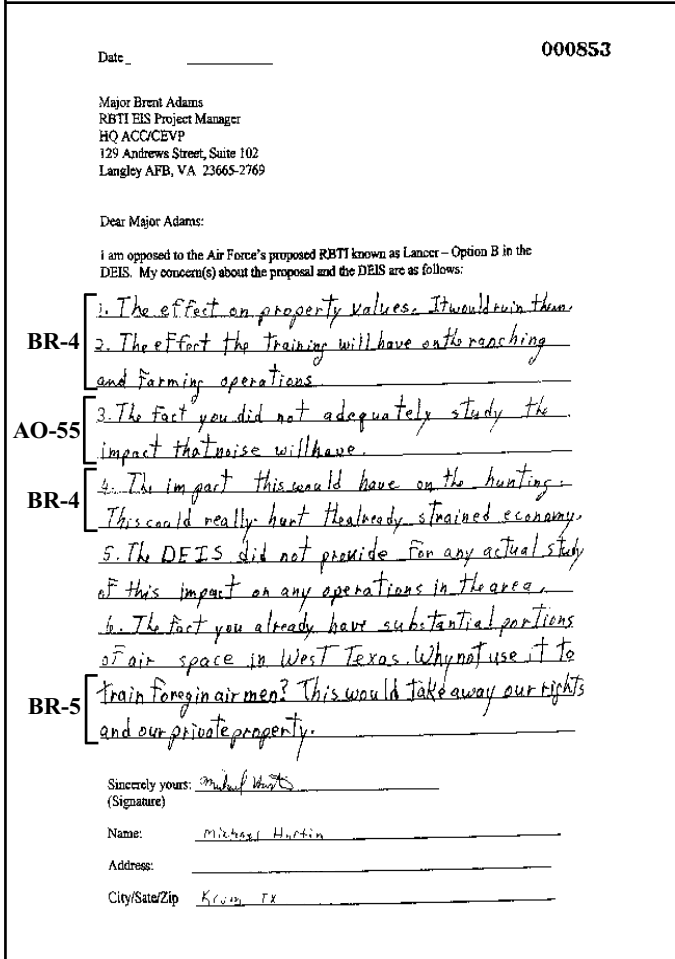 000853
Date_
Major Brent Adams
RBTI EIS Project Manager
HQ ACC/CEVP
129 Andrews Street, Suite 102
Langley AFB, VA 23665-2769
Dear Major Adams:
I am opposed to the Air Force's proposed RBTI known as Lancer – Option B in the
DEIS. My concern(s) about the proposal and the DEIS are as follows:
1. The effect on property values. It would ruin them.
BR-4 2. The effect the training will have on the ranching
and farming operations
AO-55 3. The fact you did not adequately study the
impact that noise will have.
BR-4 4. The impact this would have on the hunting.
This could really hurt the already strained economy.
5. The DEIS did not provide for any actual study
of this impact on any operations in the area.
6. The fact you already have substantial portions
of air space in West Texas. Why not use it to
BR-5 train foregin air men? This would take away our rights
and our private property.
Sincerely yours:
(Signature)
Name: Michael
Address:
City/Sate/Zip Krum TX